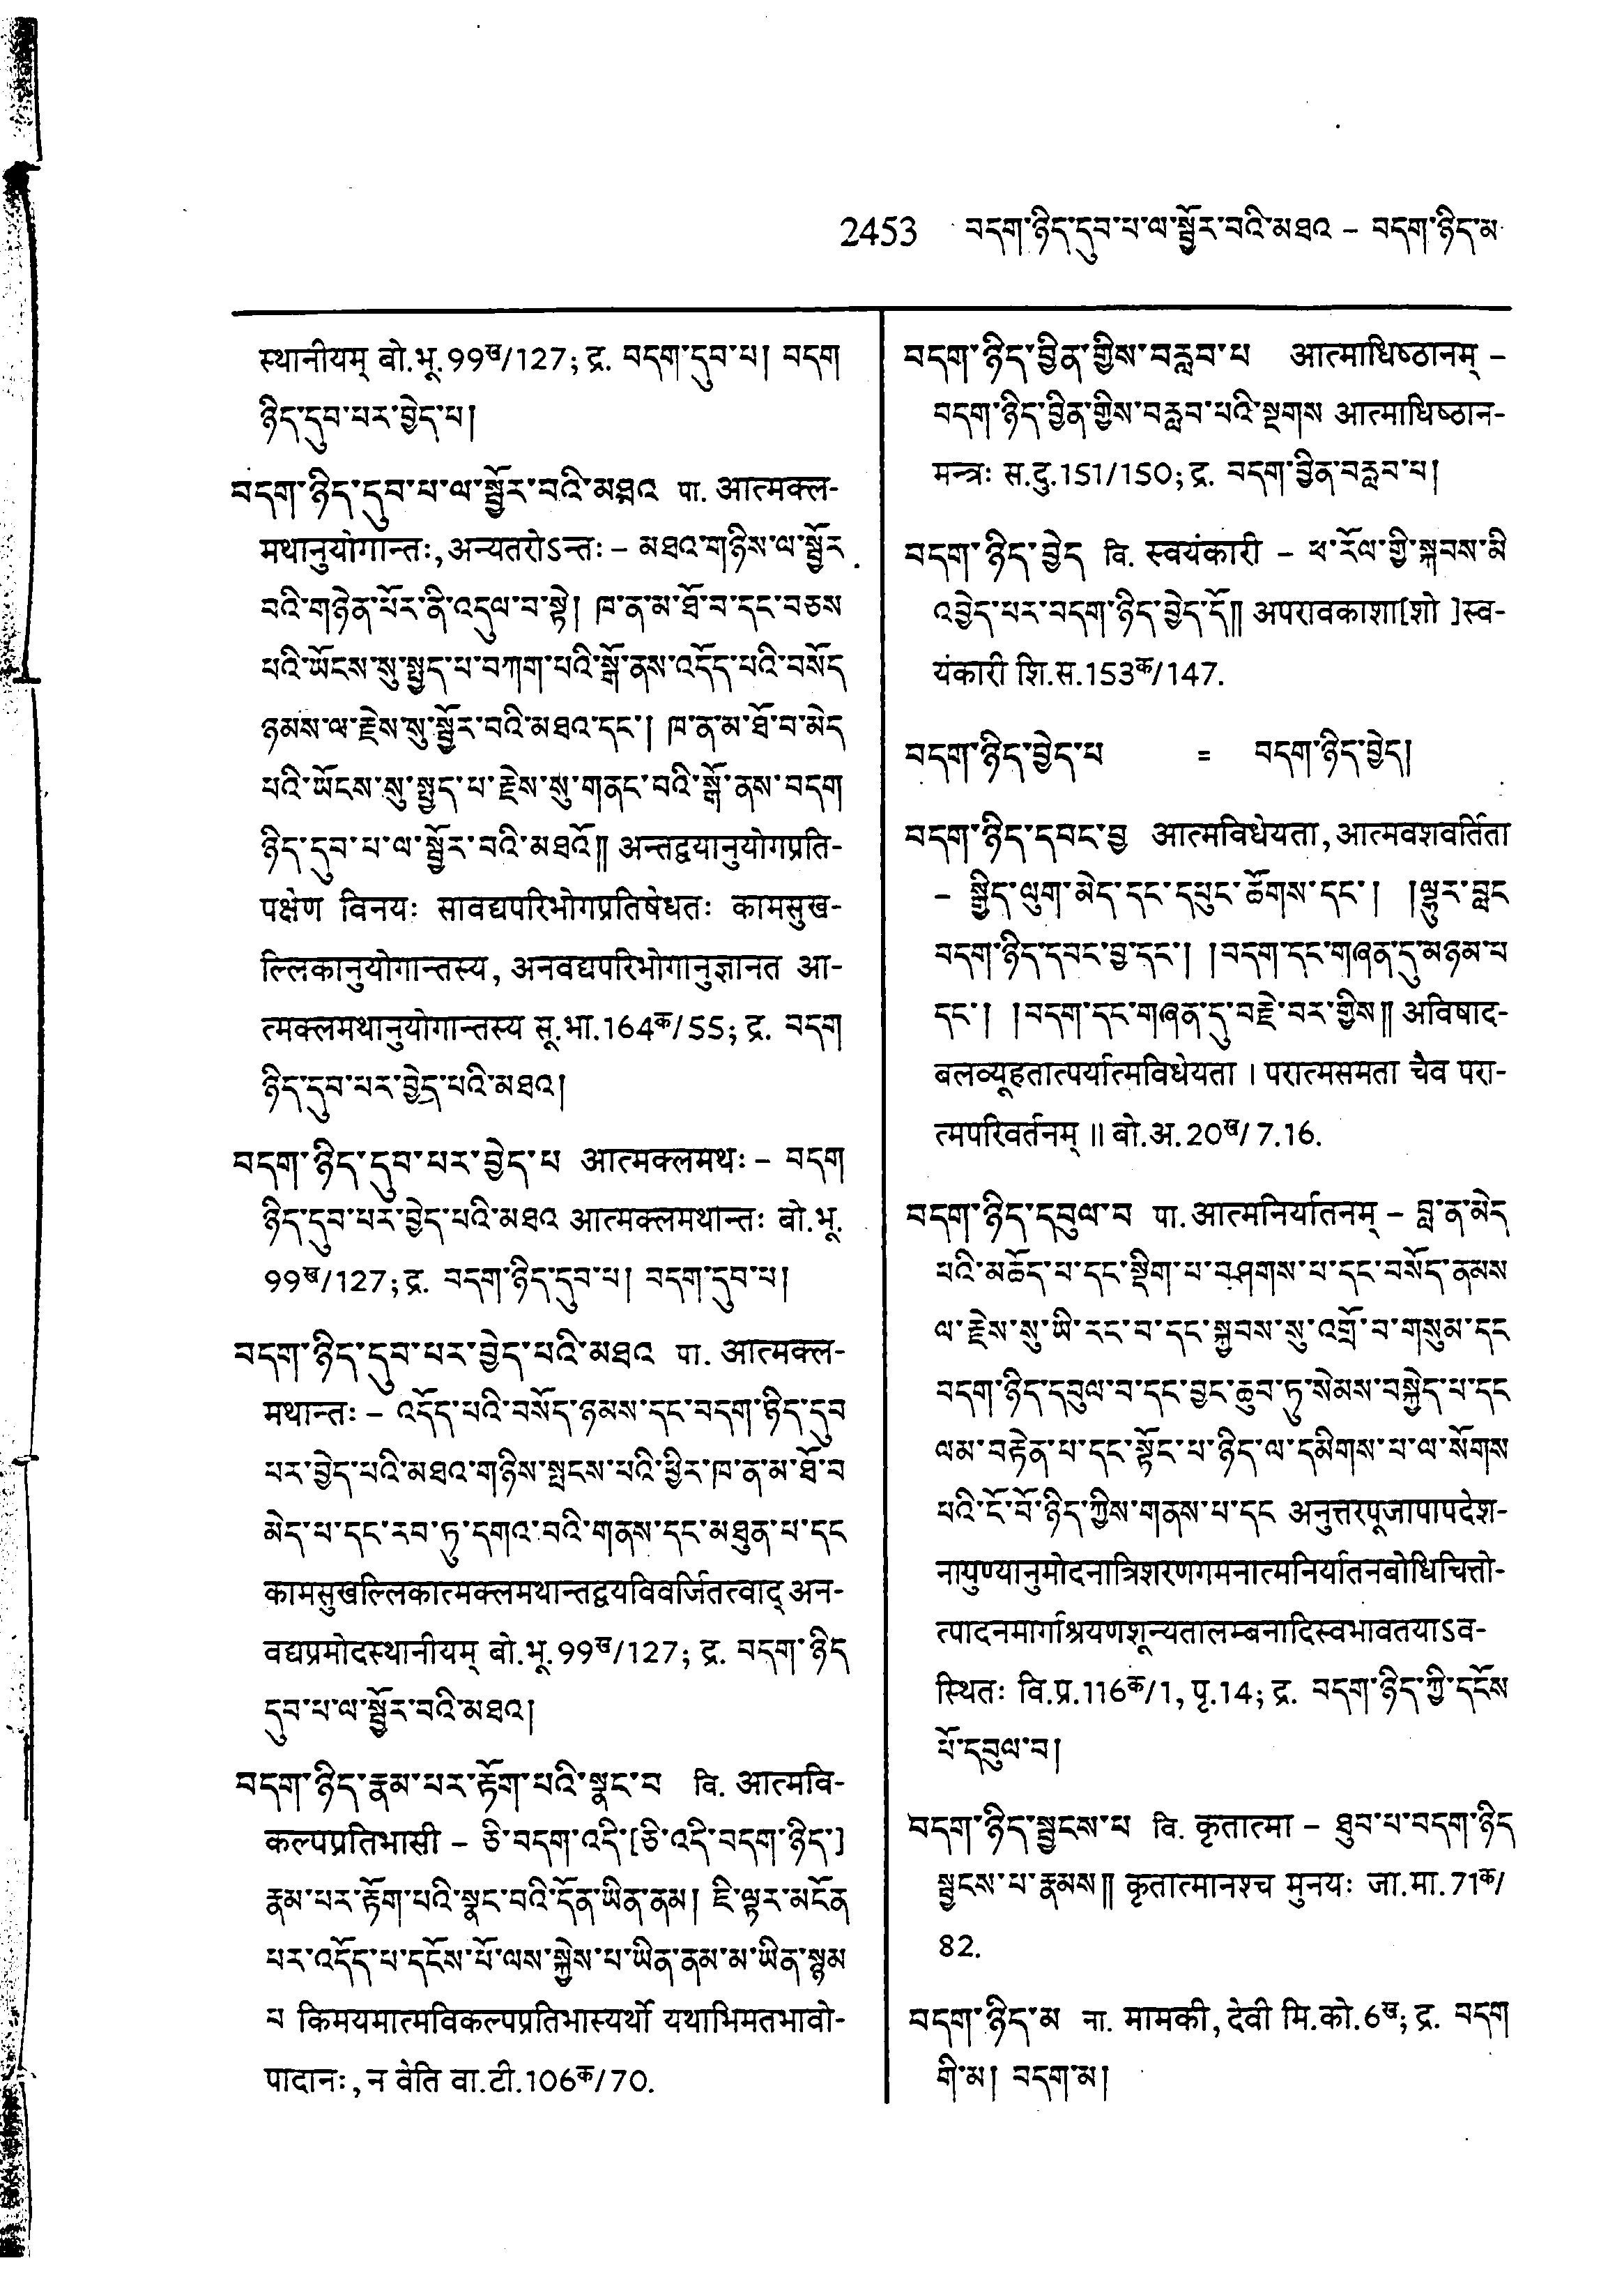 2453 བདག་ཉིད་དུབ་པ་ལ་སྦྱོར་བའི་མཐའ – བདག་ཉིད་མ
स्थानीयम् बो.भू.99ख/127; द्र. བདག་དུབ་པ། བདག
ཉིད་དུབ་པར་བྱེད་པ།
བདག་ཉིད་དུབ་པ་ལ་སྦྱོར་བའི་མཐའ पा. आत्मक्ल-
मथानुयोगान्तः, अन्यतरोऽन्तः – མཐའ་གཉིས་ལ་སྦྱོར
བའི་གཉེན་པོར་ནི་འདུལ་བ་སྟེ། ཁ་ན་མ་ཐོ་བ་དང་བཅས
པའི་ཡོངས་སུ་སྤྱད་པ་བཀག་པའི་སྒོ་ནས་འདོད་པའི་བསོད
ཉམས་ལ་རྗེས་སུ་སྦྱོར་བའི་མཐའ་དང་། ཁ་ན་མ་ཐོ་བ་མེད
པའི་ཡོངས་སུ་སྤྱད་པ་རྗེས་སུ་གནང་བའི་སྒོ་ནས་བདག
ཉིད་དུབ་པ་ལ་སྦྱོར་བའི་མཐའོ༎ अन्तद्वयानुयोगप्रति-
पक्षेण विनयः सावद्यपरिभोगप्रतिषेधतः कामसुख-
ल्लिकानुयोगान्तस्य, अनवद्यपरिभोगानुज्ञानत आ-
त्मक्लमथानुयोगान्तस्य सू.भा.164क/55; द्र. བདག
ཉིད་དུབ་པར་བྱེད་པའི་མཐའ།
བདག་ཉིད་དུབ་པར་བྱེད་པ आत्मक्लमथः – བདག
ཉིད་དུབ་པར་བྱེད་པའི་མཐའ आत्मक्लमथान्तः बो.भू.
99ख/127; द्र. བདག་ཉིད་དུབ་པ། བདག་དུབ་པ།
བདག་ཉིད་དུབ་པར་བྱེད་པའི་མཐའ पा. आत्मक्ल-
मथान्तः – འདོད་པའི་བསོད་ཉམས་དང་བདག་ཉིད་དུབ
པར་བྱེད་པའི་མཐའ་གཉིས་སྤངས་པའི་ཕྱིར་ཁ་ན་མ་ཐོ་བ
མེད་པ་དང་རབ་ཏུ་དགའ་བའི་གནས་དང་མཐུན་པ་དང
कामसुखल्लिकात्मक्लमथान्तद्वयविवर्जितत्वाद् अन-
वद्यप्रमोदस्थानीयम् बो.भू.99ख/127; द्र. བདག་ཉིད
དུབ་པ་ལ་སྦྱོར་བའི་མཐའ།
བདག་ཉིད་རྣམ་པར་རྟོག་པའི་སྣང་བ वि. आत्मवि-
कल्पप्रतिभासी – ཅི་བདག་འདི་[ཅི་འདི་བདག་ཉིད་]
རྣམ་པར་རྟོག་པའི་སྣང་བའི་དོན་ཡིན་ནམ། ཇི་ལྟར་མངོན
པར་འདོད་པ་དངོས་པོ་ལས་སྐྱེས་པ་ཡིན་ནམ་མ་ཡིན་སྙམ
པ किमयमात्मविकल्पप्रतिभास्यर्थो यथाभिमतभावो-
पादानः, न वेति वा.टी.106क/70.
བདག་ཉིད་བྱིན་གྱིས་བརླབ་པ आत्माधिष्ठानम् –
བདག་ཉིད་བྱིན་གྱིས་བརླབ་པའི་སྔགས आत्माधिष्ठान-
मन्त्रः स.दु.151/150; द्र. བདག་བྱིན་བརླབ་པ།
བདག་ཉིད་བྱེད वि. स्वयंकारी – ཕ་རོལ་གྱི་སྐབས་མི
འབྱེད་པར་བདག་ཉིད་བྱེད་དོ༎ अपरावकाशा[शो ]स्व-
यंकारी शि.स.153क/147.
བདག་ཉིད་བྱེད་པ = བདག་ཉིད་བྱེད།
བདག་ཉིད་དབང་བྱ आत्मविधेयता, आत्मवशवर्तिता
– སྒྱིད་ལུག་མེད་དང་དཔུང་ཚོགས་དང་། །ལྷུར་བླང
བདག་ཉིད་དབང་བྱ་དང་། །བདག་དང་གཞན་དུ་མཉམ་པ
དང་། །བདག་དང་གཞན་དུ་བརྗེ་བར་གྱིས༎ अविषाद-
बलव्यूहतात्पर्यात्मविधेयता । परात्मसमता चैव परा-
त्मपरिवर्तनम् ॥ बो.अ.20ख/7.16.
བདག་ཉིད་དབུལ་བ पा. आत्मनिर्यातनम् – བླ་ན་མེད
པའི་མཆོད་པ་དང་སྡིག་པ་བཤགས་པ་དང་བསོད་ནམས
ལ་རྗེས་སུ་ཡི་རང་བ་དང་སྐྱབས་སུ་འགྲོ་བ་གསུམ་དང
བདག་ཉིད་དབུལ་བ་དང་བྱང་ཆུབ་ཏུ་སེམས་བསྐྱེད་པ་དང
ལམ་བརྟེན་པ་དང་སྟོང་པ་ཉིད་ལ་དམིགས་པ་ལ་སོགས
པའི་ངོ་བོ་ཉིད་ཀྱིས་གནས་པ་དང अनुत्तरपूजापापदेश-
नापुण्यानुमोदनात्रिशरणगमनात्मनिर्यातनबोधिचित्तो-
त्पादनमार्गाश्रयणशून्यतालम्बनादिस्वभावतयाऽव-
स्थितः वि.प्र.116क/1, पृ.14; द्र. བདག་ཉིད་ཀྱི་དངོས
པོ་དབུལ་བ།
བདག་ཉིད་སྦྱངས་པ वि. कृतात्मा – ཐུབ་པ་བདག་ཉིད
སྦྱངས་པ་རྣམས༎ कृतात्मानश्च मुनयः जा.मा.71क/
82.
བདག་ཉིད་མ ना. मामकी, देवी मि.को.6ख; द्र. བདག
གི་མ། བདག་མ།